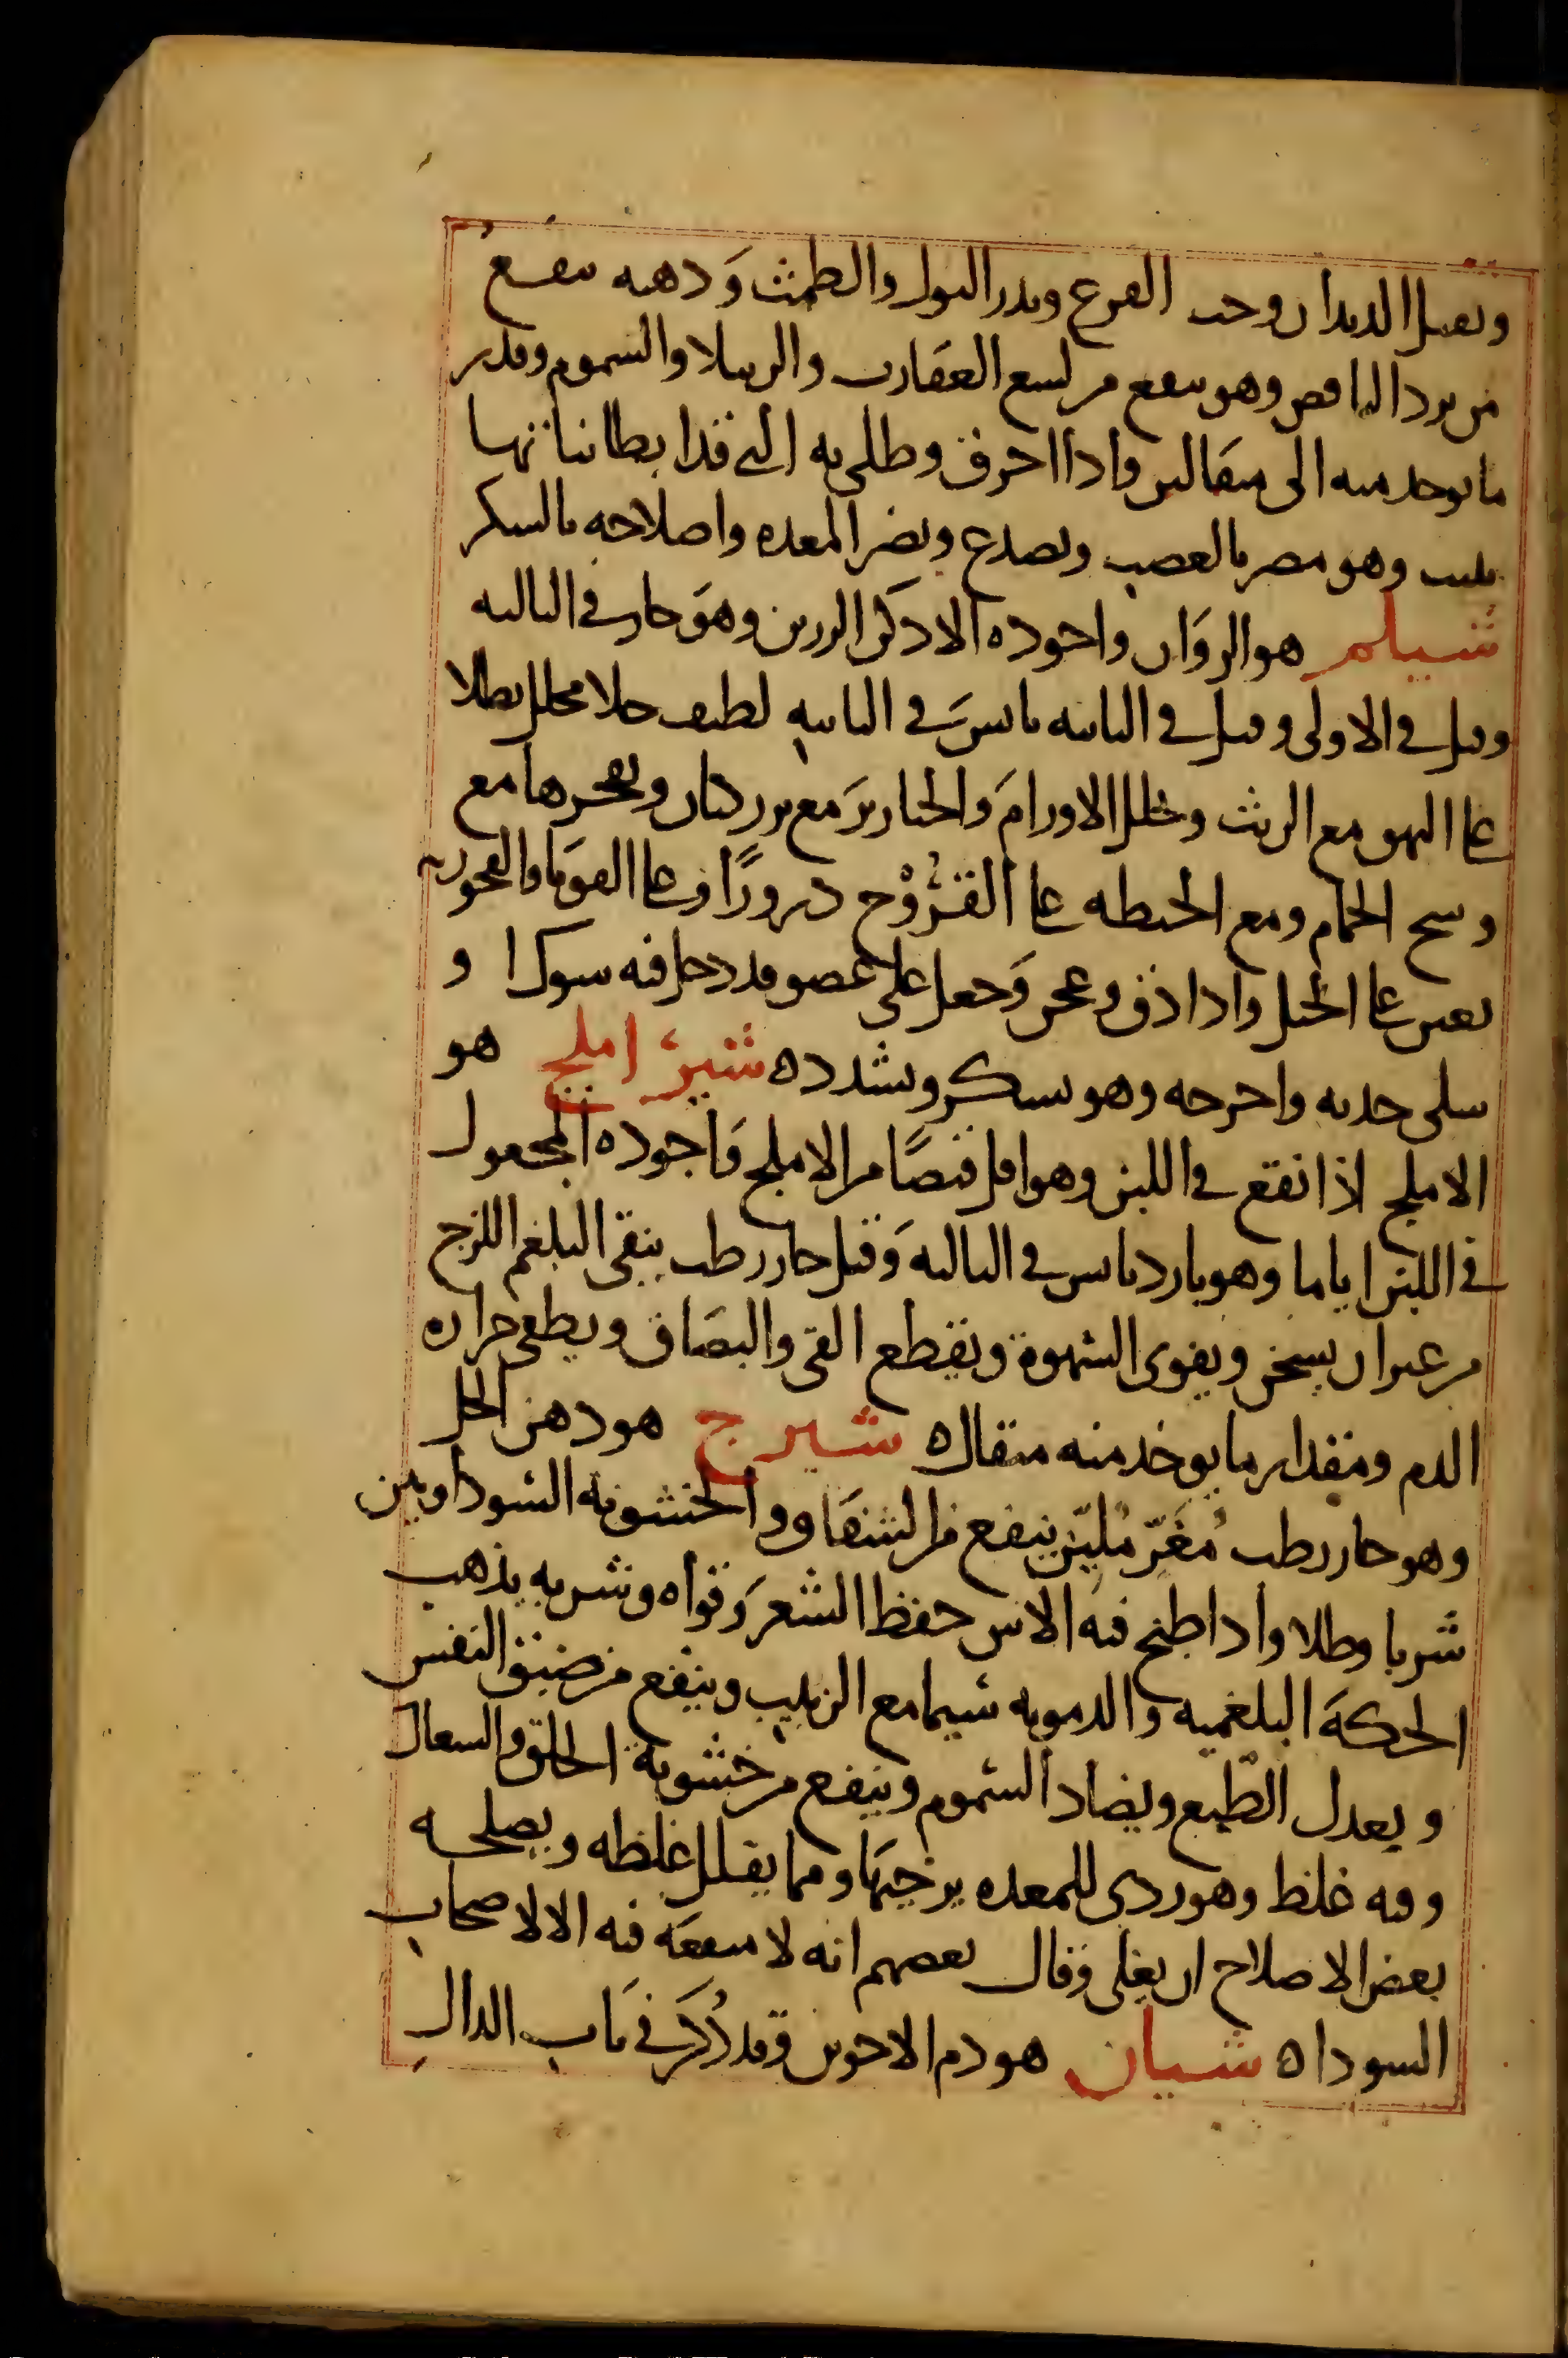 ويقتل الديدان وحب القرع ويدر البول والطمث ودهنه ينفع
من برد النافض وهو ينفع من لسع العقارب والرتيلا والسموم وقدر
ما يوخد منه الى مثقالين واذا احرق وطلي به الذي قد ابطا نباتها
نبتت وهو مضر بالعصب ويصدع ويضر المعده واصلاحه بالسكر
شيلم هو الزوان واجوده الادكن الرزين وهو حار في الثالثه
وقيل في الاولى وقيل في الثانيه يابس في الثانيه لطيف جلا محلل يطلا
على البهق مع الزيت ويحلل الاورام والخنازير مع بزر كتان ويفجرها مع
وسخ الحمام ومع الحنطه على القروح درورا وعلى القوبا والفجور
يعين على الحبل وادا دق وعجن وجعل على عضو قد دخل فيه شوك او
سلى جذبه واخرجه وهو يسكر ويسدد ه شير املج هو
الاملج اذا انقع في اللبن وهو اقل قبضا من الاملج واجوده المجعول
في اللبن اياما وهو بارد يابس في الثالثه وقيل حار رطب ينقي البلغم اللزج
من غير ان يسخن ويقوى الشهوة ويقطع القى والبصاق ويطفي حراره
الدم ومقدار ما يوخد منه مثقال ه شيرج هو دهن الحل
وهو حار رطب مغر ملين ينفع من الشقاق والخشونه السوداويين
شربا وطلا وادا طبخ فيه الاس حفظ الشعر وقواه وشربه يذهب
الحكة البلغميه والدمويه سيما مع الزبيب وينفع من ضيق النفس
ويعدل الطبع ويضاد السموم وينفع من خشونة الحلق والسعال
وفيه غلظ وهو ردى للمعده يرخيها ومما يقلل غلظه ويصلحه
بعض الاصلاح ان يغلى وقال بعضهم انه لا منفعه فيه الا لاصحاب
السودا ه شيان هو دم الاخوين وقد ذكر في باب الدال